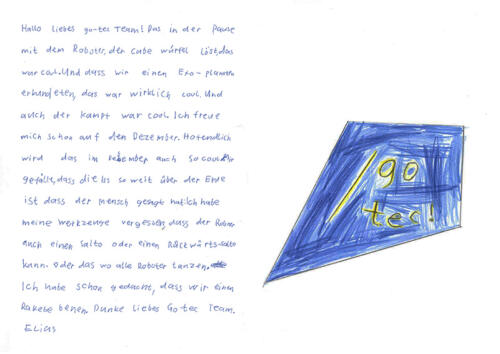 Hallo liebes go-tec Team! Das in der Pause
mit dem Roboter, der Cube würfel löst, das
war cool. Und dass wir einen Exo-planeten
erkundeten, das war wirklich cool. Und
auch der kampf war cool. Ich freue
mich schon auf den Dezember. Hofendlich
wird das im Dezember auch so cool. Mir
gefällt, dass die ISS so weit über der Erde
ist dass der mensch gesagt hat ich habe
meine Werkzeuge vergessen, dass der Roboter
auch einen Salto oder einen Rückwärts-salto
kann. oder das wo alle Roboter tanzen.
Ich habe schon gedacht, dass wir einen
Rakete Danke liebes Go-tec Team.
Elias
go
tec!